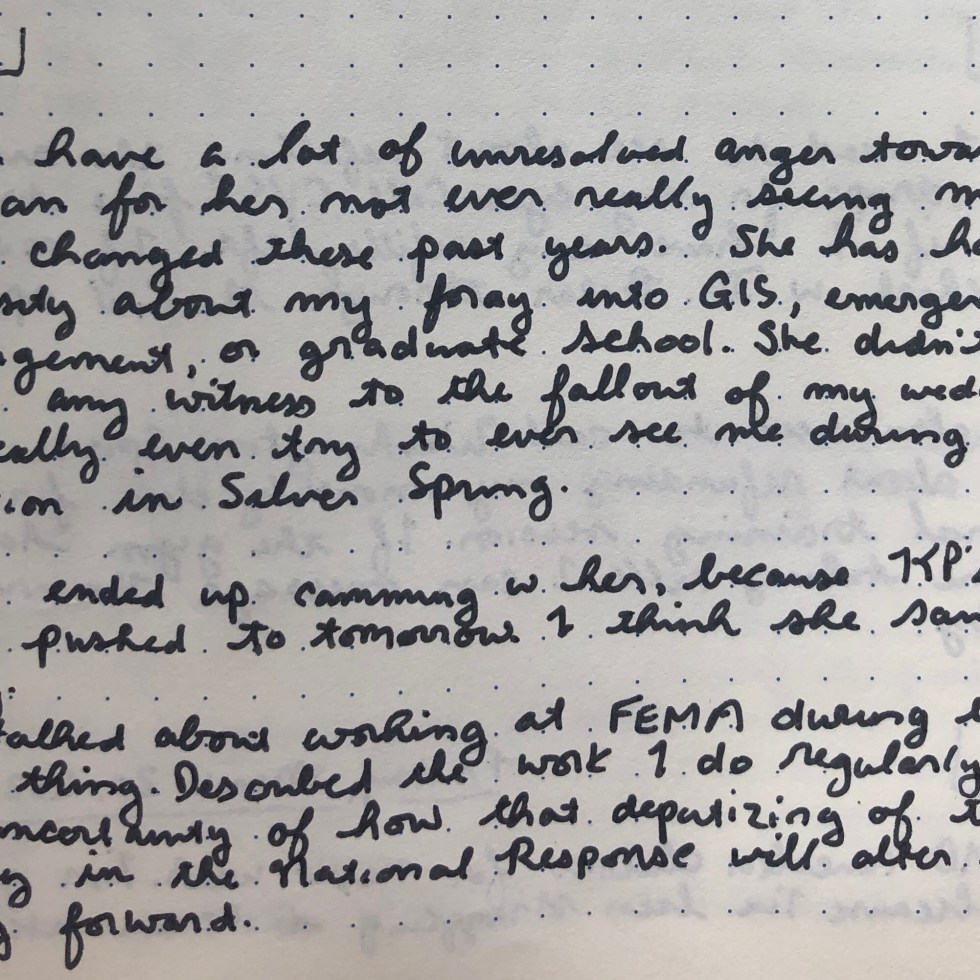 have a lot of unresolved anger towa
an for her not ever really seeing m
changed these past years. She has h
sity about my foray into GIS, emergen
gement, or graduate school. She didn't
any witness to the fallout of my wed
eally even try to ever see me during
ion in Silver Spring.
ended up camming w her, because KP's
pushed to tomorrow. I think she sa
talked about working at FEMA during
thing. Described the work I do regularly
uncertainty of how that deputizing of
in the National Response will alter
forward.